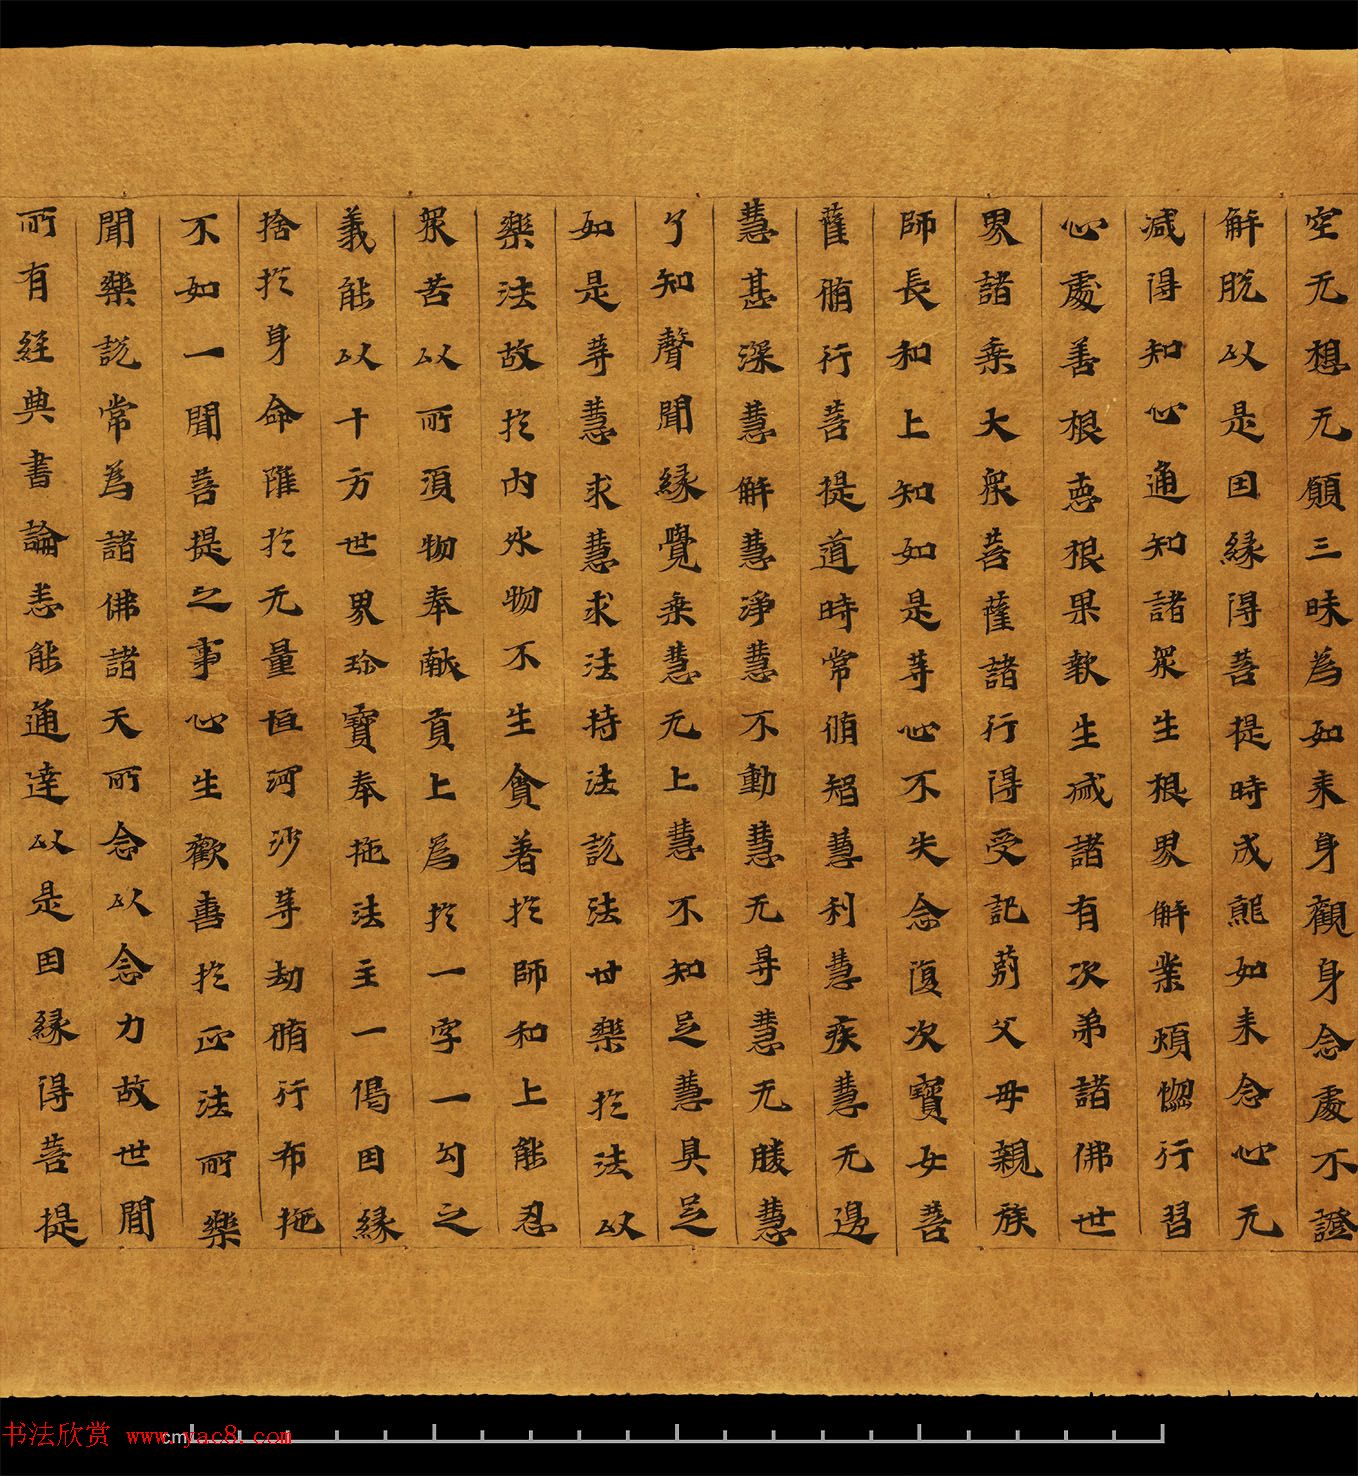 空无想无願三昧為如来身觀身念處不證
解脱以是因縁得菩提時成熊如来念心无
减得知心通知諸衆生根界解業煩惚行習
心處善根惡根果報生滅諸有次弟諸佛世
界諸乘大衆菩薩諸行得受記莂父母親族
師長和上知如是等心不失念復次寶女菩
薩脩行菩提道時常脩智慧利慧疾慧无邊
慧甚深慧解慧淨慧不動慧无㝵慧无勝慧
了知聲聞縁覺乘慧无上慧不知足慧具足
如是等慧求慧求法持法説法世樂於法以
樂法故於内外物不生貪著於師和上能忍
衆苦以所湏物奉獻貢上為於一字一勾之
義能以十方世界珎寶奉施法主一偈因縁
捨於身命雖於无量恒河沙等劫脩行布施
不如一聞菩提之事心生歡喜於正法所樂
聞樂説常為諸佛諸天所念以念力故世間
所有經典書論悉能通達以是因縁得菩提
cm
书法欣赏 www.yac8.com